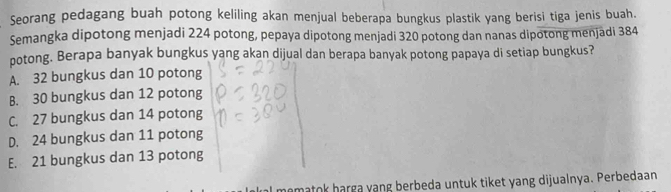 Seorang pedagang buah potong keliling akan menjual beberapa bungkus plastik yang berisi tiga jenis buah.
Semangka dipotong menjadi 224 potong, pepaya dipotong menjadi 320 potong dan nanas dipotong menjadi 384
potong. Berapa banyak bungkus yang akan dijual dan berapa banyak potong papaya di setiap bungkus?
A. 32 bungkus dan 10 potong
B. 30 bungkus dan 12 potong
P = 320
C. 27 bungkus dan 14 potong
D. 24 bungkus dan 11 potong
E. 21 bungkus dan 13 potong
mematok harga yang berbeda untuk tiket yang dijualnya. Perbedaan